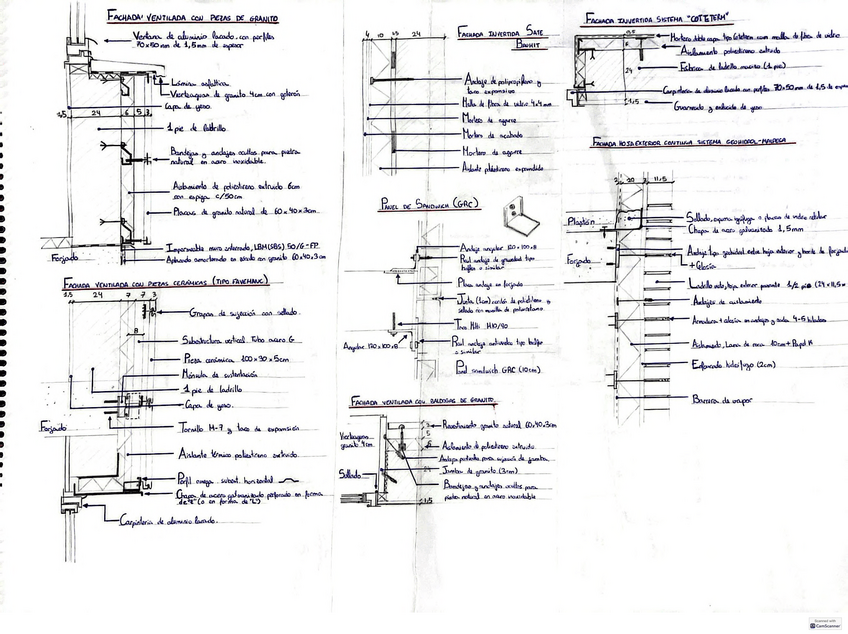 FACHADA VENTILADA CON PIEZAS DE GRANITO
Ventana de aluminio lacado, con perfiles
70x50 mm de 1,5 mm de espesor
Lámina asfáltica
Vierteaguas de granito 4cm con goterón
Capa de yeso
1,5 24 6 5 3
1 pie de ladrillo
Bandejas y anclajes ocultos para piedra
natural en acero inoxidable.
Aislamiento de poliestireno extruido 6cm
con espiga c/50cm
Placas de granito natural de 60x40x3cm
Impermeable muro enterrado, LBM(SBS) 50/G-FP
en granito 60x40x3cm
Forjado
FACHADA VENTILADA CON PIEZAS CERÁMICAS (TIPO FAVEMANC)
1,5 24 7 7 3
Grapas de sujección con sellado.
8
Subestructura vertical. Tubo acero G
Pieza cerámica 100x30x5cm
Ménsula de sustentación
1 pie de ladrillo
Capa de yeso.
Forjado
Tornillo M-7 y taco de expansión
Aislante térmico poliestireno extruido.
Perfil omega subest. horizontal
Chapa de acero galvanizado perforado en forma
de "Z" (o en forma de "L")
Carpintería de aluminio lacado.
FACHADA INVERTIDA SATE
BAUMIT
4 10 1,5 24
Anclaje de polipropileno y
taco expansivo
Malla de fibra de vidrio 4x4mm
Mortero de agarre
Mortero de acabado
Mortero de agarre
Aislante poliestireno expandido
PANEL DE SANDWICH (GRC)
Anclaje angular 120x100x8
Placa anclaje en forjado
Junta (1cm) cordón de poliestireno y
sellado con masilla de poliuretano
Taco Hilti M10/90
Angular 120x100x8
o similar
Panel sandwich GRC (10cm)
FACHADA VENTILADA CON BALDOSAS DE GRANITO
Revestimiento granito natural 60x40x3cm
Vierteaguas
granito 4cm
Aislamiento de poliestireno extruido
Anclaje puntual para sujección de jambas
Jambas de granito (3cm)
Sellado
Bandejas y anclajes ocultos para
piedra natural en acero inoxidable
1,5
FACHADA INVERTIDA SISTEMA "COTETERM"
Mortero doble capa tipo Coteterm con malla de fibra de vidrio
Aislamiento poliestireno extruido
Fábrica de ladrillo macizo (1 pie)
Carpintería de aluminio lacado con perfiles 70x50mm de 1,5 de
Guarnecido y enlucido de yeso
24
1,5
FACHADA HOJA EXTERIOR CONTINUA SISTEMA GEOHIDROL-MURPEGA
2 10 2 11,5
Plastón
Sellado, espuma ignífuga o placas de vidrio celular
Chapa de acero galvanizado 1,5mm
Forjado
Anclaje tipo geohidrol entre hoja exterior y borde de forjado
+ Celosía
Ladrillo visto, hoja exterior pasante 1/2 pie (24x11,5x
Anclajes de
Armadura + celosía en anclaje y cada 4-5 hiladas
Aislamiento, Lana de roca 10cm + Papel K
Enfoscado hidrófugo (2cm)
Barrera de vapor
Scanned with
CamScanner